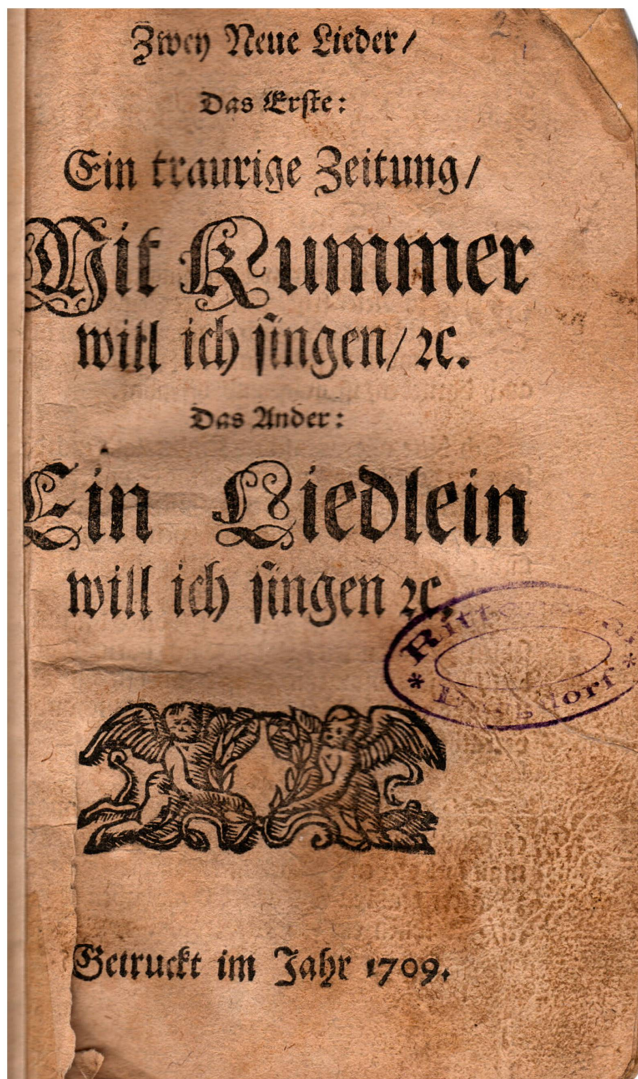 Zwey Neue Lieder/
Das Erste:
Ein traurige Zeitung/
Mit Kummer
will ich singen/ ꝛc.
Das Ander:
Ein Liedlein
will ich singen ꝛc.
Getruckt im Jahr 1709.